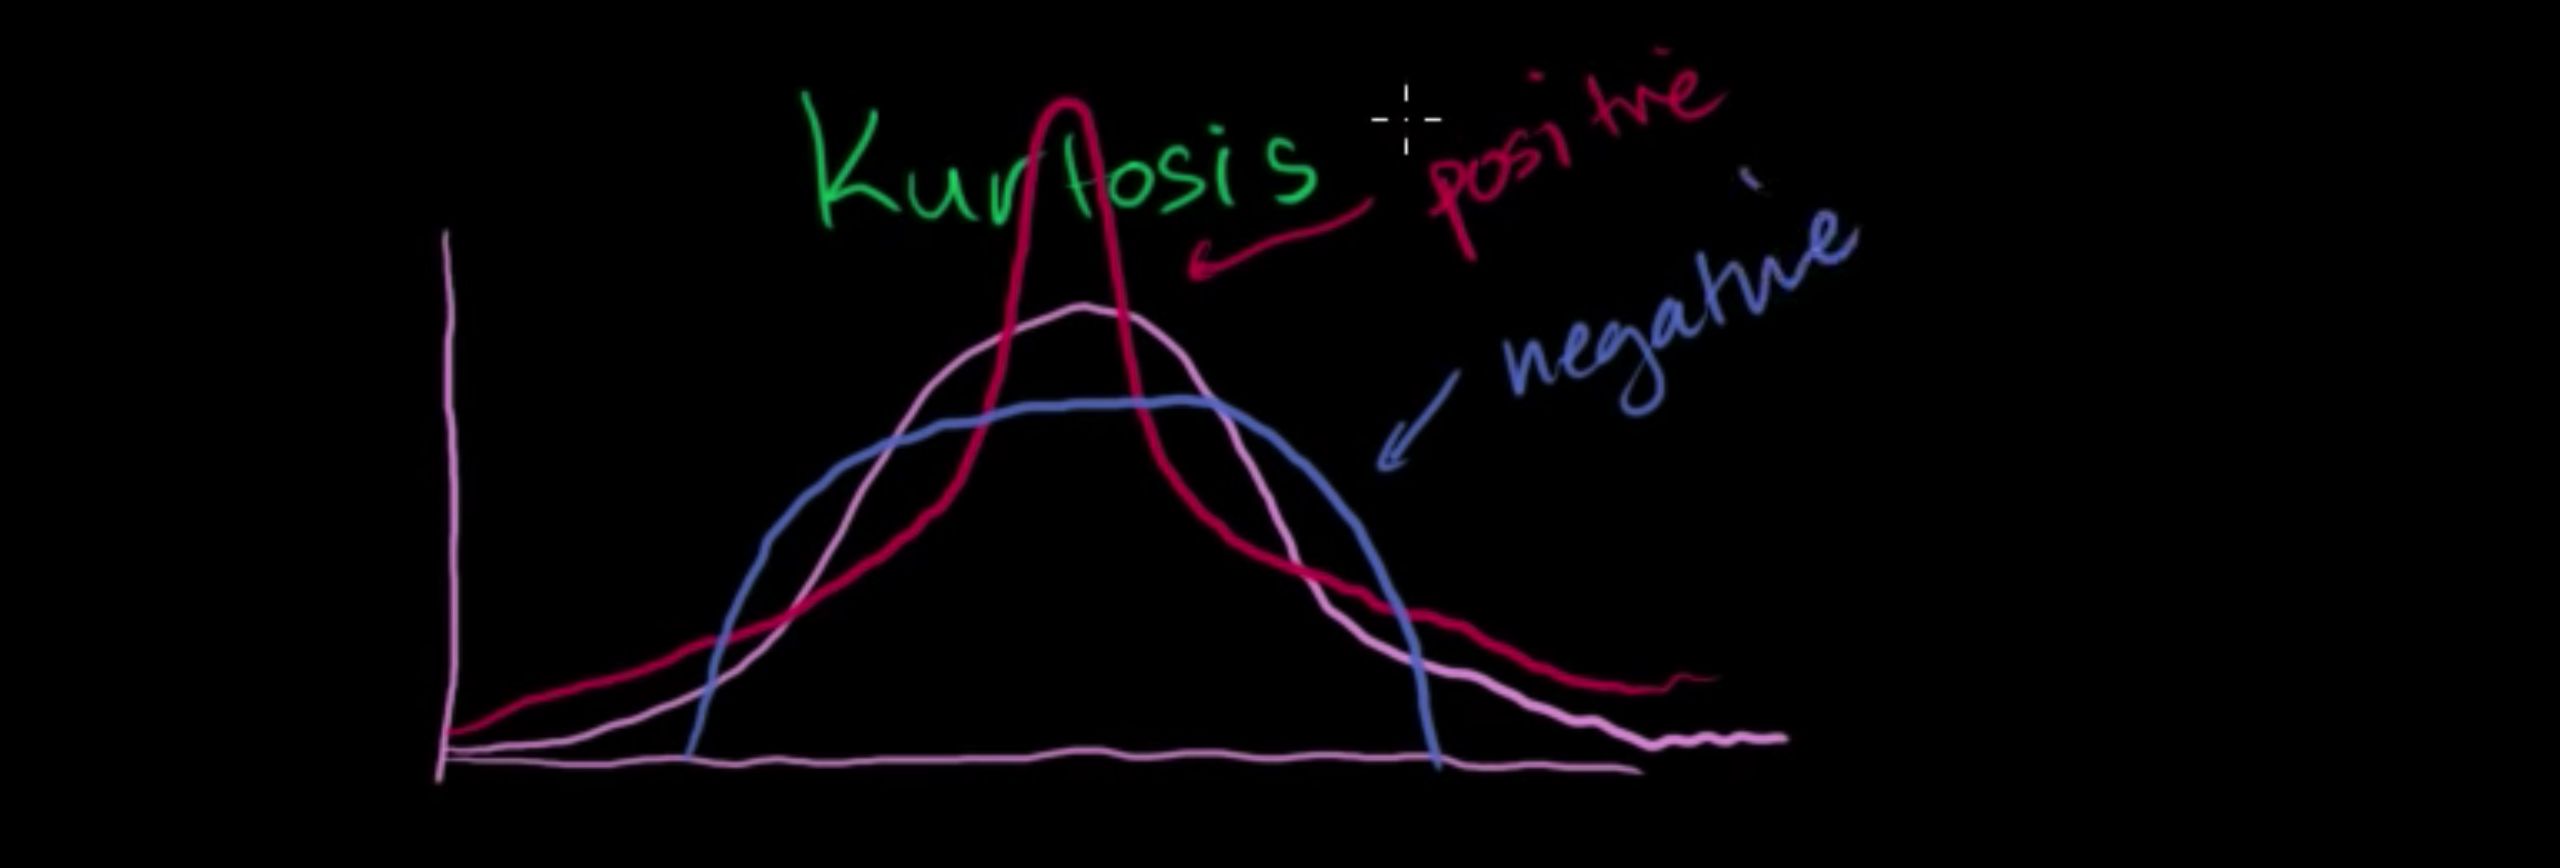 Kurtosis
positive
negative